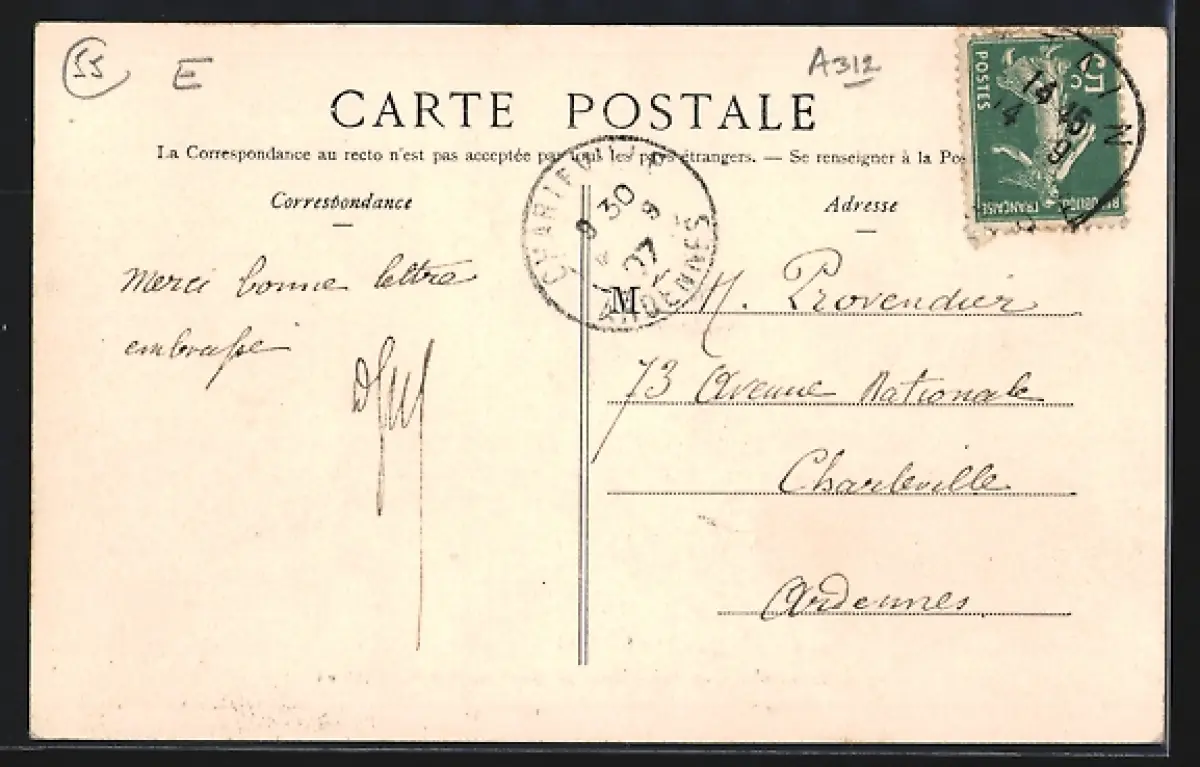 55
E
A312
CARTE POSTALE
La Correspondance au recto n'est pas acceptée par tous les pays étrangers. — Se renseigner à la Pos
Correspondance
Adresse
5c
POSTES
REPUBLIQUE FRANÇAISE
CHARLEVILLE
9 30
9
07
ARDENNES
Merci bonne lettre
embrasse
M
M. Provendier
73 Avenue Nationale
Charleville
Ardennes